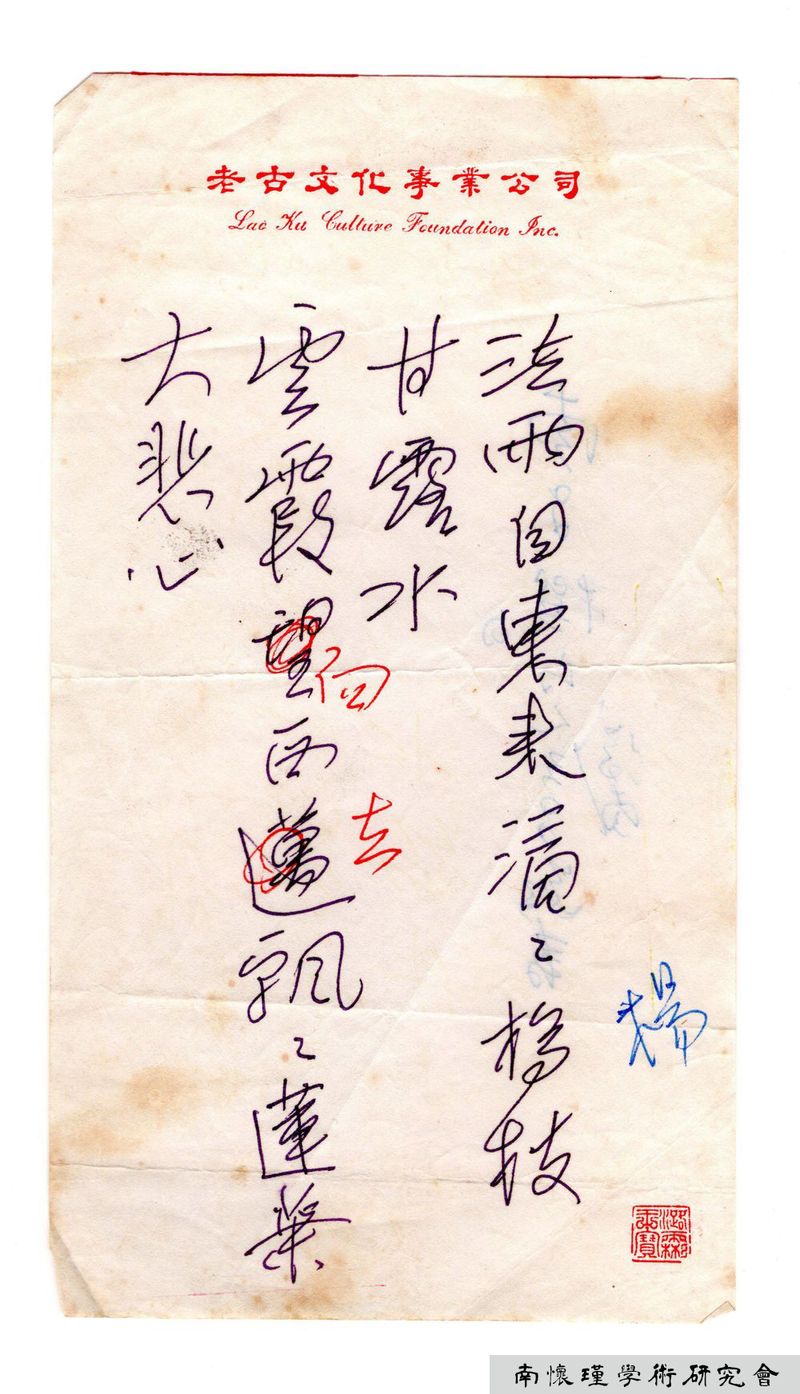 老古文化事業公司
Lao Ku Culture Foundation Inc.
法雨自東來滴〻楊枝
楊
甘露水
雲霞望西邁飄〻蓮葉
向
去
大悲心
南懷瑾學術研究會